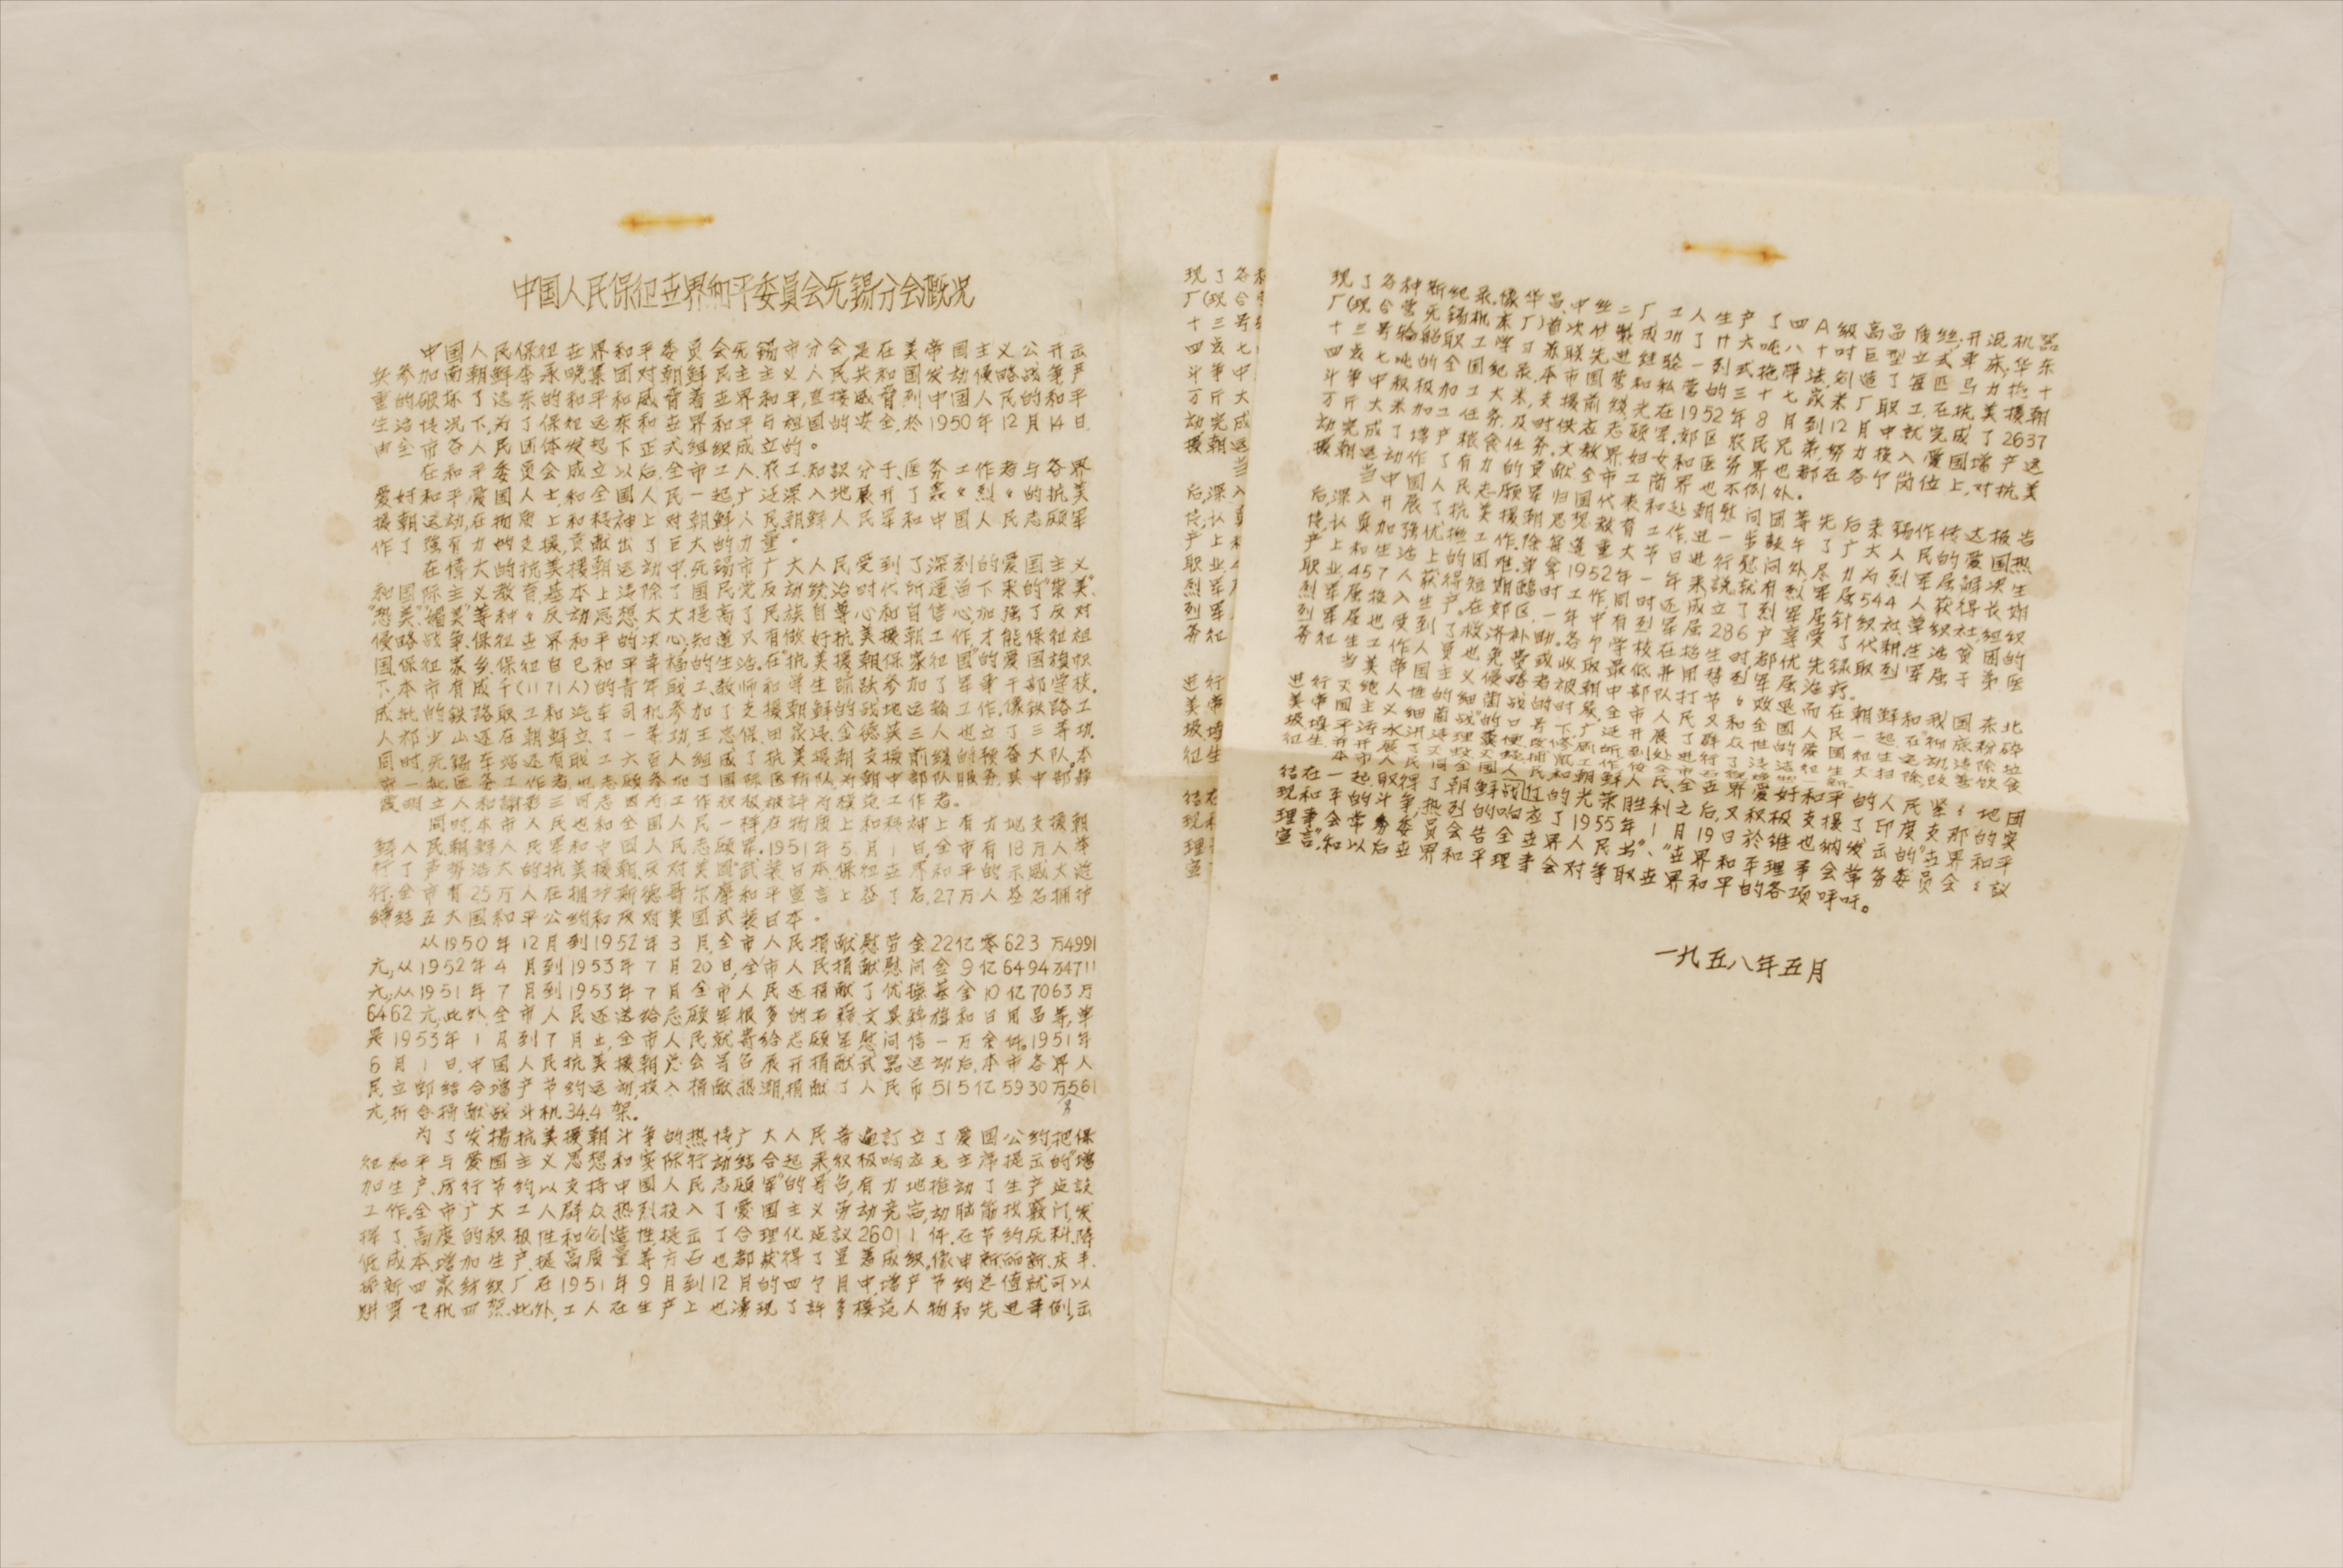 中国人民保衞世界和平委員会无锡分会概况
中国人民保卫世界和平委员会无锡市分会,是在美帝国主义公开出
兵参加南朝鲜李承晚集团对朝鲜民主主义人民共和国发动侵略战争严
重的破坏了远东的和平和威脅着世界和平,直接威脅到中国人民的和平
生活情况下,为了保卫远东和世界和平与祖国的安全,於1950年12月14日,
由全市各人民团体发起下正式组织成立的。
在和平委员会成立以后,全市工人、农工、知識分子、医务工作者与各界
爱好和平,爱国人士,和全国人民一起,广泛深入地展开了轰〃烈〃的抗美
援朝运动,在物质上和精神上对朝鲜人民,朝鲜人民军和中国人民志愿军
作了强有力的支援,贡献出了巨大的力量。
在偉大的抗美援朝运动中,无锡市广大人民受到了深刻的爱国主义
和国际主义教育,基本上清除了国民党反动统治时代所遗留下来的"崇美"、
"恐美"、"媚美"等种〃反动思想,大大提高了民族自尊心和自信心,加强了反对
侵略战争、保卫世界和平的决心,知道只有做好抗美援朝工作,才能保卫祖
国、保卫家乡、保卫自己和平幸福的生活.在"抗美援朝保家卫国"的爱国旗帜
下,本市有成千(1171人)的青年职工、教师和学生踊跃参加了军事干部学校.
成批的铁路职工和汽车司机参加了支援朝鲜的战地运输工作.像铁路工
人祁少山还在朝鲜立了一等功,王志保、田家洤、金德英三人也立了三等功.
同时,无锡车站还有职工六百人组成了抗美援朝支援前线的预备大队。本
市一批医务工作者,也志愿参加了国际医防队,为朝中部队服务,其中部
明立人和謝彩三同志因为工作积极被評为模范工作者。
同时,本市人民也和全国人民一样,在物质上和精神上有力地支援朝
鲜人民、朝鲜人民军和中国人民志愿军.1951年5月1日,全市有18万人举
行了声势浩大的抗美援朝、反对美国武装日本、保卫世界和平的示威大遊
行;全市有25万人在拥护斯德哥尔摩和平宣言上签了名.27万人签名拥护
缔结五大国和平公约和反对美国武装日本。
从1950年12月到1952年3月,全市人民捐献慰劳金22亿零623万4991
元,从1952年4月到1953年7月20日,全市人民捐献慰问金9亿6494万4711
元,从1951年7月到1953年7月全市人民还捐献了优撫基金10亿7063万
6462元,此外,全市人民还送给志愿军很多的书籍、文具、锦旗和日用品等,单
是1953年1月到7月止,全市人民就寄给志愿军慰问信一万余件。1951年
6月1日,中国人民抗美援朝总会号召展开捐献武器运动后,本市各界人
民立即结合增产节约运动,投入捐献热潮,捐献了人民币515亿5930万5561
元,折合捐献战斗机34.4架。
为了发揚抗美援朝斗争的热情,广大人民普遍訂立了爱国公约,把保
卫和平与爱国主义思想和实际行动结合起来,积极响应毛主席提出的"增
加生产、厉行节约,以支持中国人民志愿军"的号召,有力地推动了生产建設
工作。全市广大工人群众热烈投入了爱国主义劳动竞赛,动脑筋找竅门,发
揮了高度的积极性和创造性,提出了合理化建議26011件.在节约原料、降
低成本、增加生产、提高质量等方面也都获得了显著成绩。像申新、丽新、庆丰、
振新四家纺织厂在1951年9月到12月的四个月中,增产节约总值就可以
购买飞机四架.此外,工人在生产上也湧现了許多模范人物和先进事例,出
现了各种新纪录,像华昌、中丝二厂工人生产了四A级高品质丝;开源机器
厂(现合营无锡机床厂)首次仿製成功了廿六呎八十吋巨型立式車床;华东
十三号輪船职工学习苏联先进经验一列式拖駁法,创造了每匹马力拖十
四点七吨的全国纪录.本市国营和私营的三十七家米厂职工,在抗美援朝
斗争中积极加工大米,支援前线,光在1952年8月到12月中就完成了2637
万斤大米加工任务,及时供应志愿军.郊区农民兄弟,努力投入爱国增产运
动,完成了增产粮食任务.文教界、妇女和医务界也都在各个岗位上,对抗美
援朝运动作了有力的贡献,全市工商界也不例外。
当中国人民志愿军归国代表和赴朝慰问团等先后来锡作传达报告
后,深入开展了抗美援朝思想教育工作,进一步鼓午了广大人民的爱国热
情,认真加强优撫工作.除每逢重大节日进行慰问外,尽力为烈军属解决生
产上和生活上的困难.单拿1952年一年来説,就有烈军属544人获得长期
职业,457人获得短期臨时工作,同时还成立了烈军属针织社、草织社组织
烈军属推生产。在郊区,一年中有烈军属286户享受了代耕.生活贫困的
列军属也得到了救济补助.各个学校在招生时,都优先録取列军属子弟.医
务工作人员也免费或收取最低并用特到军属治疗。
当美帝国主义侵略者被朝中部队打节〃败退而在朝鲜和我国东北
进行灭绝人性的细菌战的时候,全市人民又和全国人民一起,在"粉碎
美帝国主义细菌战"的口号下,广泛开展了群众性的爱国卫生运动,清除垃圾
在一起,取得了朝鲜战的光荣胜利之后,又积极支援了印度支那的
和平的斗争,热烈的响应了1955年1月19日於維也纳发出的"世界和平
理事会常务委员会告全世界人民书"、"世界和平理事会常务委员会〃議
宣言",和以后世界和平理事会对争取世界和平的各项呼吁。
一九五八年五月